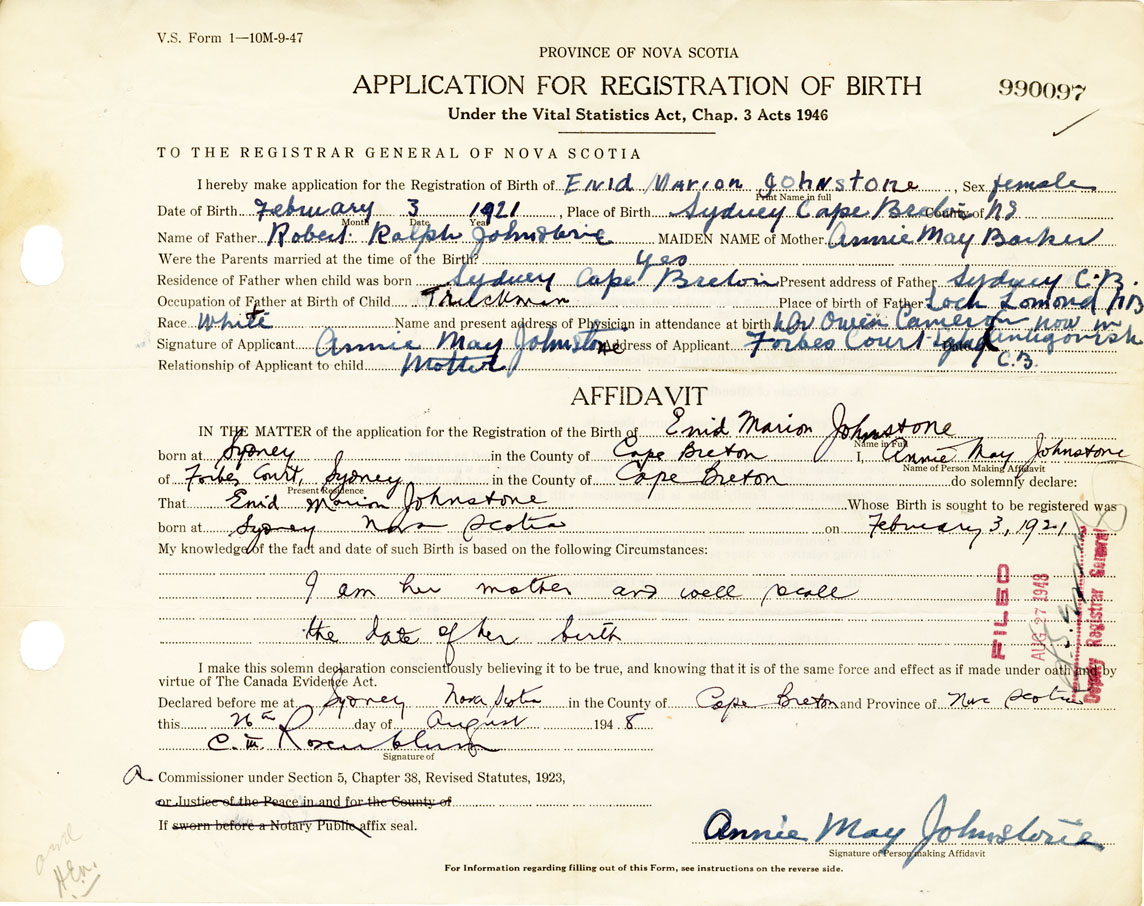 V.S. Form 1—10M-9-47
PROVINCE OF NOVA SCOTIA
APPLICATION FOR REGISTRATION OF BIRTH
990097
Under the Vital Statistics Act, Chap. 3 Acts 1946
TO THE REGISTRAR GENERAL OF NOVA SCOTIA
I hereby make application for the Registration of Birth of Enid Marion Johnstone, Sex female
Print Name in full
Date of Birth February 3 1921, Place of Birth Sydney Cape Breton County of NS
Month Date Year
Name of Father Robert Ralph Johnstone MAIDEN NAME of Mother Annie May Barker
Were the Parents married at the time of the Birth? yes
Residence of Father when child was born Sydney Cape Breton Present address of Father Sydney C.B.
Occupation of Father at Birth of Child Truckman Place of birth of Father Loch Lomond
Race White Name and present address of Physician in attendance at birth Dr Owen Cameron now in
Signature of Applicant Annie May Johnstone Address of Applicant Forbes Court Date Antigonish
Relationship of Applicant to child Mother C.B.
AFFIDAVIT
IN THE MATTER of the application for the Registration of the Birth of Enid Marion Johnstone
Name in Full
born at Sydney in the County of Cape Breton I, Annie May Johnstone
Name of Person Making Affidavit
of Forbes Court, Sydney in the County of Cape Breton do solemnly declare:
Present Residence
That Enid Marion Johnstone Whose Birth is sought to be registered was
born at Sydney Nova Scotia on February 3, 1921
My knowledge of the fact and date of such Birth is based on the following Circumstances:
I am her mother and well recall
the date of her birth
FILED
AUG 27 1948
Deputy Registrar General
I make this solemn declaration conscientiously believing it to be true, and knowing that it is of the same force and effect as if made under oath and by
virtue of The Canada Evidence Act.
Declared before me at Sydney Nova Scotia in the County of Cape Breton and Province of Nova Scotia
this 26th day of August 1948
C. M. Rosenblum
Signature of
a Commissioner under Section 5, Chapter 38, Revised Statutes, 1923,
or Justice of the Peace in and for the County of
If sworn before a Notary Public affix seal.
Annie May Johnstone
Signature of Person making Affidavit
For Information regarding filling out of this Form, see instructions on the reverse side.